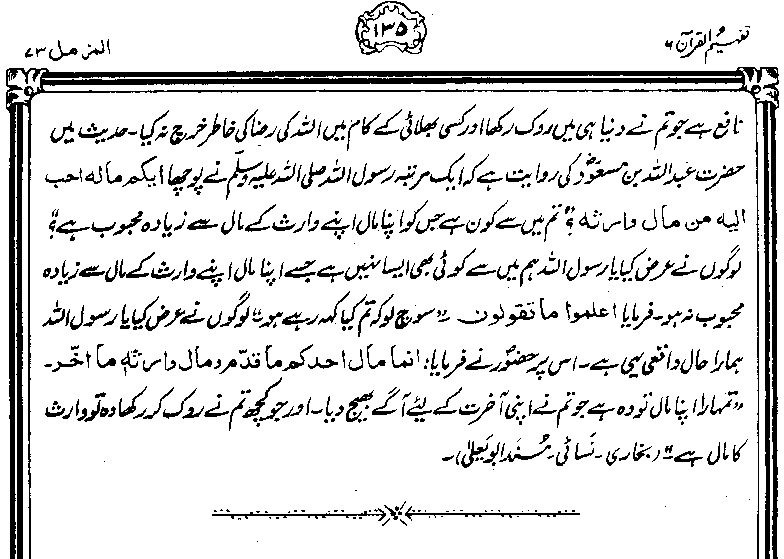 تفہیم القرآن ۶
۱۳۵
المزمل ۷۳
نافع ہے جو تم نے دنیا ہی میں روک رکھا اور کسی بھلائی کے کام میں اللہ کی رضا کی خاطر خرچ نہ کیا۔ حدیث میں
حضرت عبداللہ بن مسعودؓ کی روایت ہے کہ ایک مرتبہ رسول اللہ صلی اللہ علیہ وسلم نے پوچھا ایکم مالہ احب
الیہ من مال وارثہ ؟ "تم میں سے کون ہے جس کو اپنا مال اپنے وارث کے مال سے زیادہ محبوب ہے؟"
لوگوں نے عرض کیا یا رسول اللہ ہم میں سے کوئی بھی ایسا نہیں ہے جسے اپنا مال اپنے وارث کے مال سے زیادہ
محبوب نہ ہو۔ فرمایا اعلموا ما تقولون "سوچ لو کہ تم کیا کہہ رہے ہو"۔ لوگوں نے عرض کیا یا رسول اللہ
ہمارا حال واقعی یہی ہے۔ اس پر حضورؐ نے فرمایا: انما مال احدکم ما قدّم ومال وارثہٖ ما اخّر۔
"تمہارا اپنا مال تو وہ ہے جو تم نے اپنی آخرت کے لیے آگے بھیج دیا۔ اور جو کچھ تم نے روک کر رکھا وہ تو وارث
کا مال ہے"۔ (بخاری۔ نَسائی۔ مُسند ابو یَعلیٰ)۔